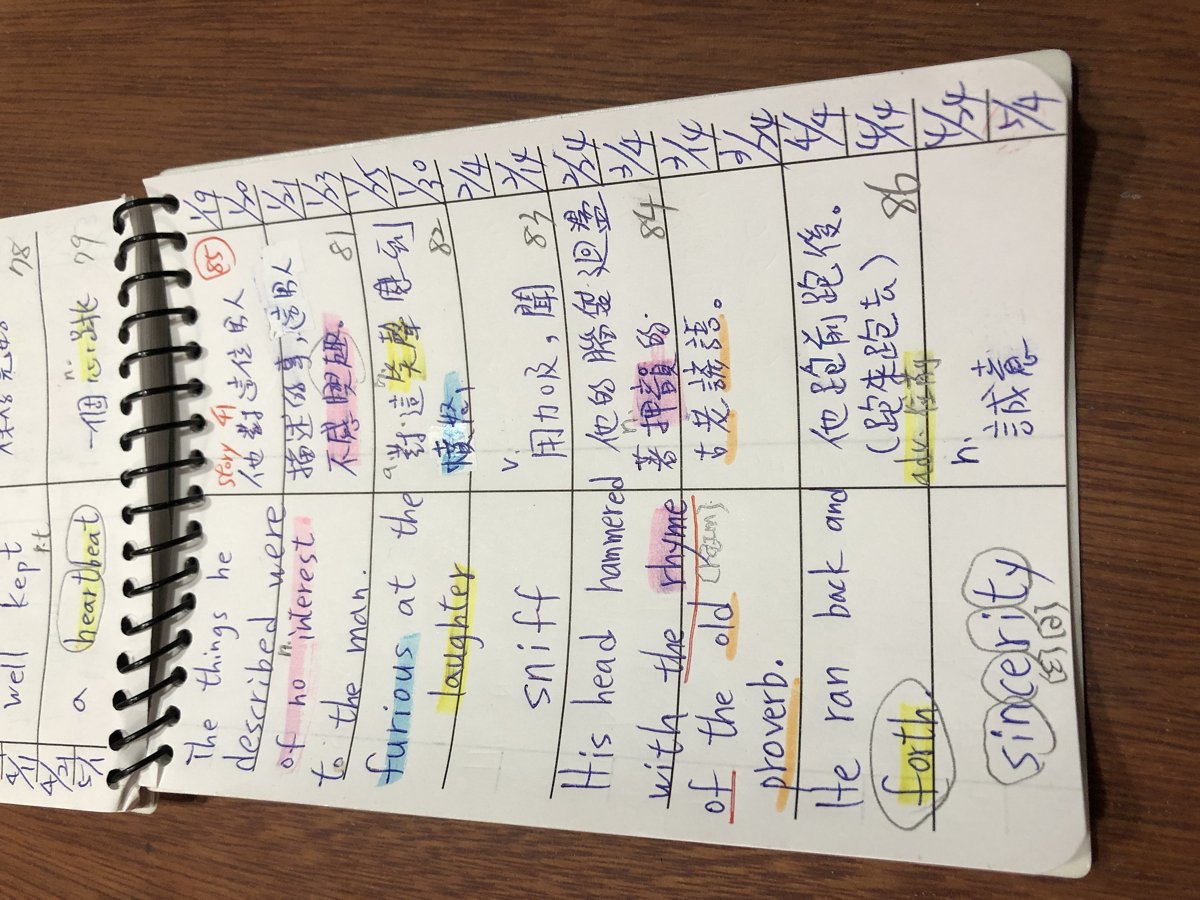 well kept
78
4/21
5/1
a heartbeat
n.
一個心跳
793
The things he
described were
of no interest
n.
to the man.
story 41
85
他對這位男人
描述的事，這男人
不感興趣。
81
furious at the
laughter
a
對這笑聲感到
憤怒！
82
sniff
v.
用力吸，聞
83
His head hammered
with the rhyme
of the old
proverb.
他的腦袋迴盪
n
著押韻的
古老諺語。
84
He ran back and
forth.
他跑前跑後。
(跑來跑去)
adv. 往前
86
sincerity
[ə] [ɜ]
n.
誠意
1/19
1/20
1/21
1/23
1/25
1/30
2/4
2/14
2/24
3/4
3/14
3/24
4/4
4/14
4/24
5/4